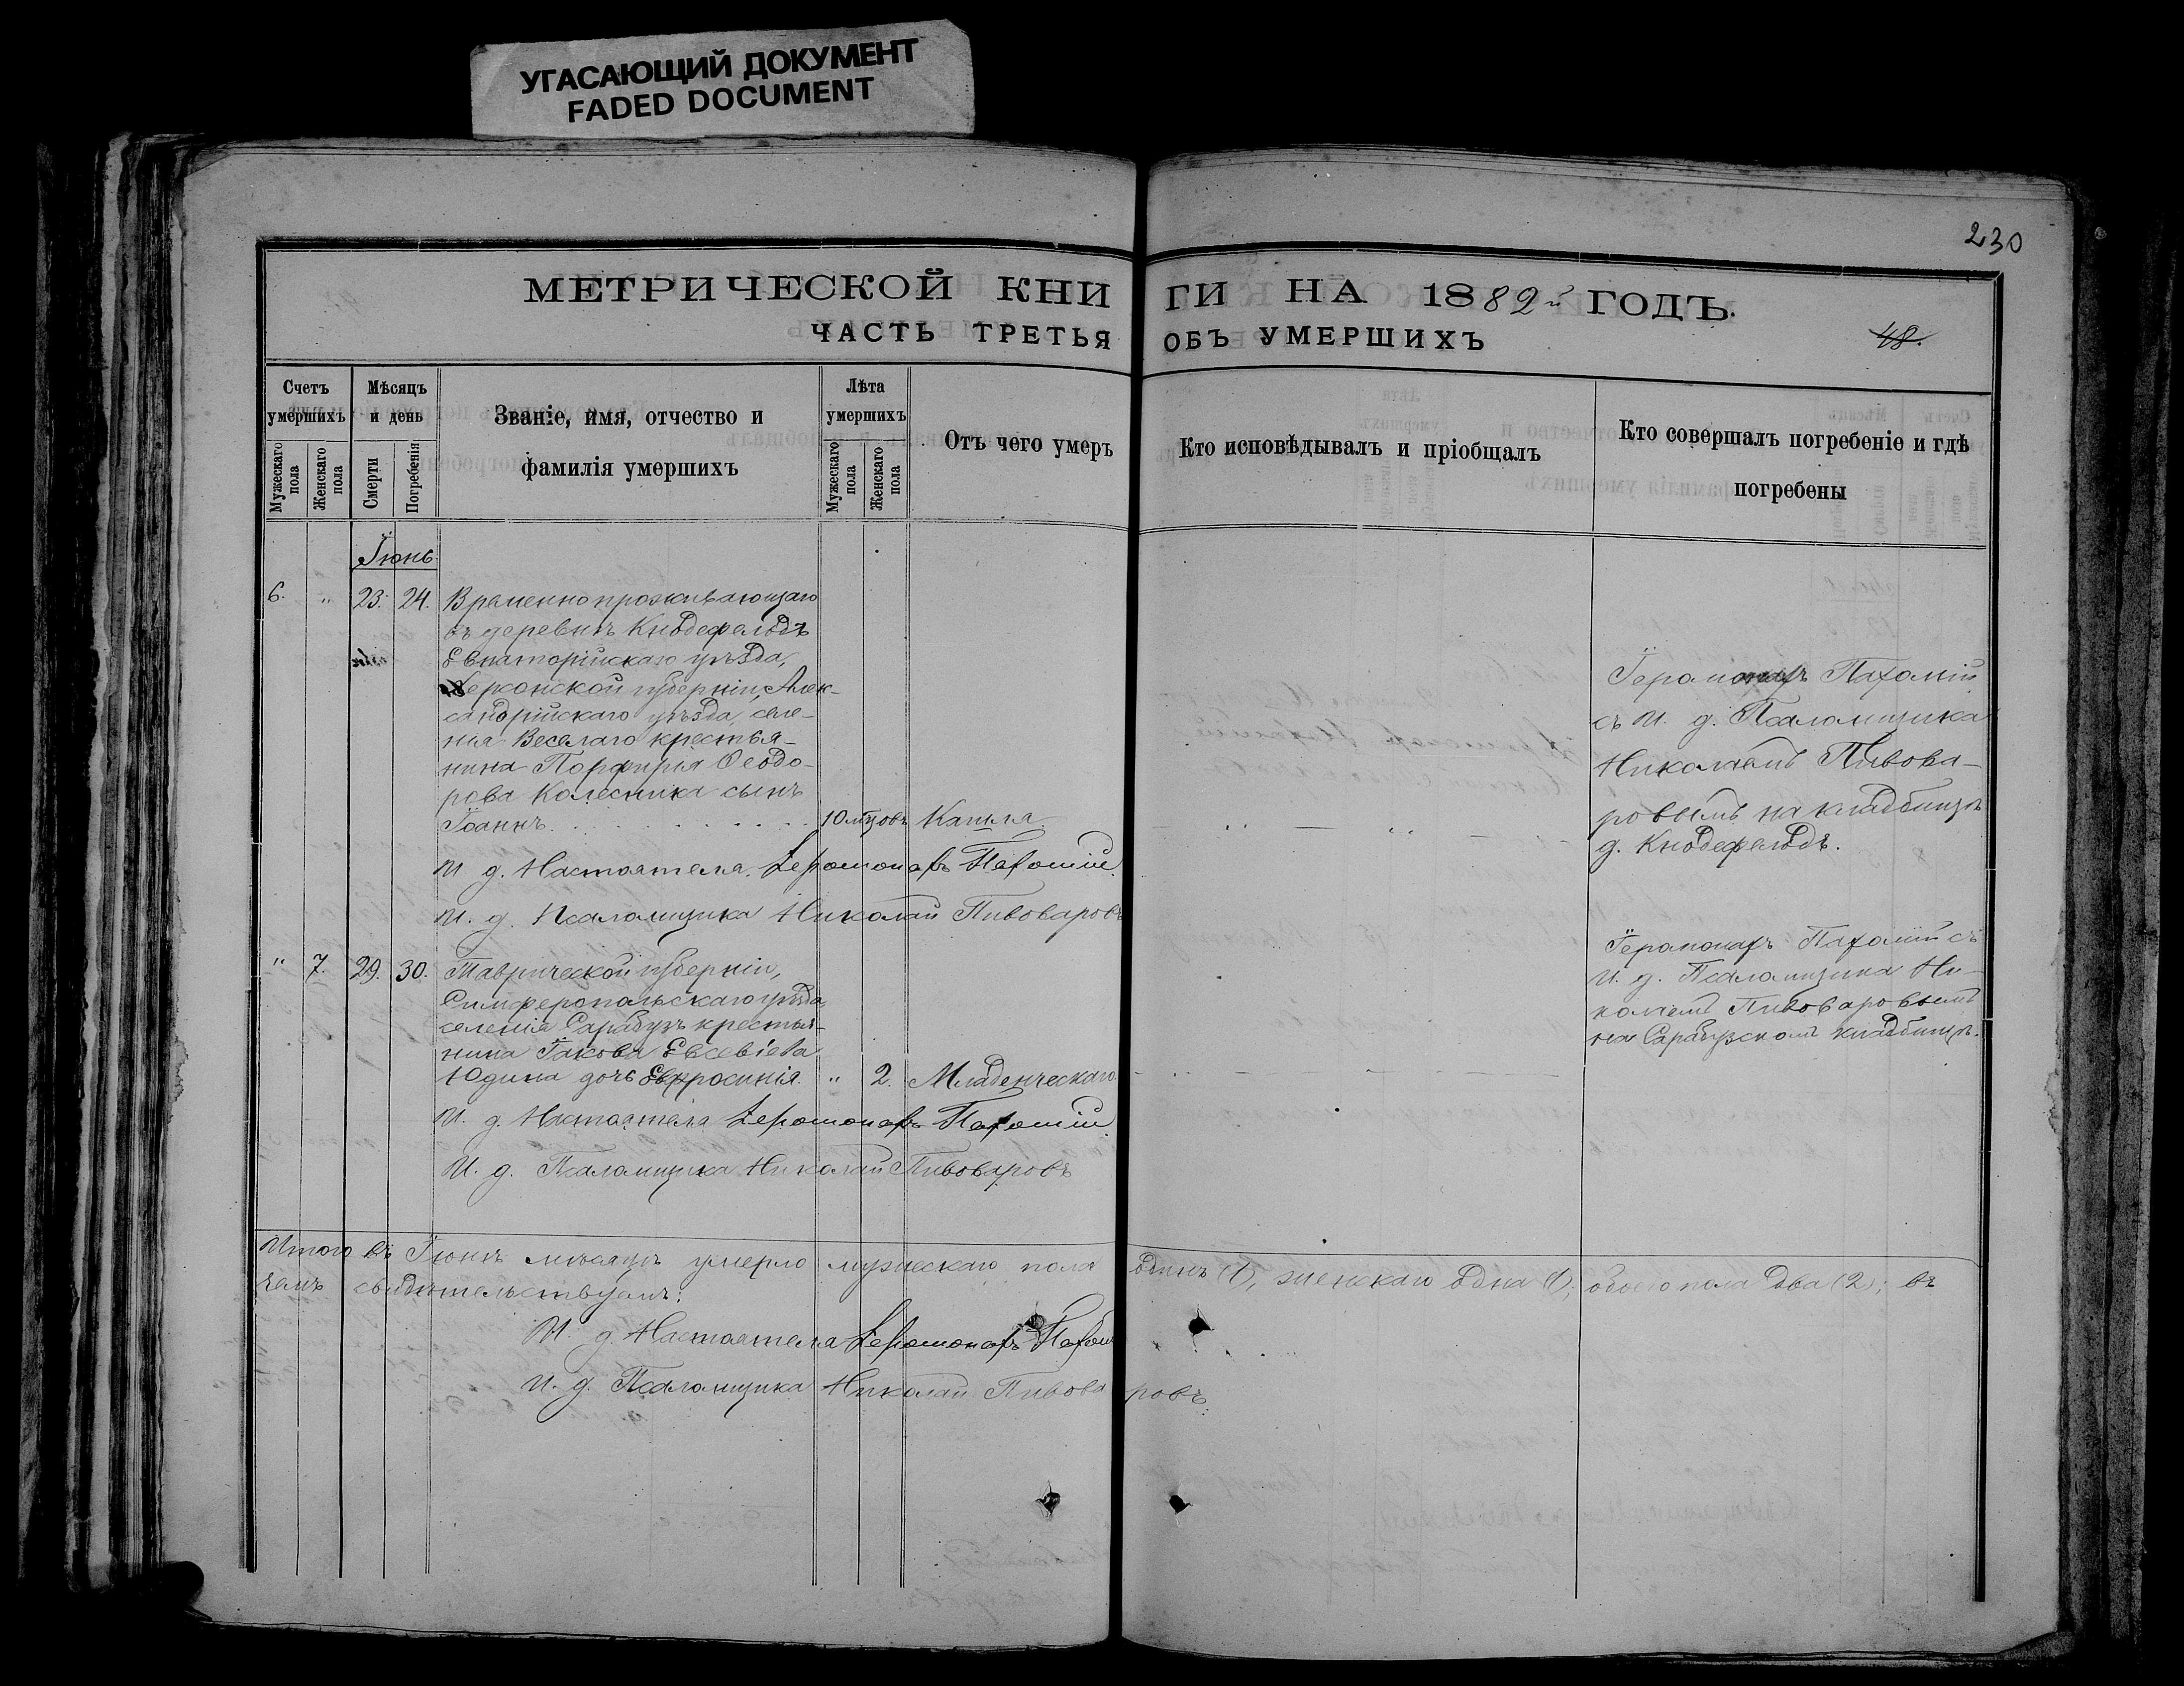 УГАСАЮЩИЙ ДОКУМЕНТ
FADED DOCUMENT
230
МЕТРИЧЕСКОЙ КНИГИ НА 1882й ГОДЪ.
ЧАСТЬ ТРЕТЬЯ ОБЪ УМЕРШИХЪ
48.
Счетъ умершихъ
Мужескаго пола
Женскаго пола
Мѣсяцъ и день
Смерти
Погребенія
Званіе, имя, отчество и
фамилія умершихъ
Лѣта умершихъ
Мужескаго пола
Женскаго пола
Отъ чего умеръ
Кто исповѣдывалъ и пріобщалъ
Кто совершалъ погребеніе и гдѣ
погребены
Іюнь
6. " 23. 24. Временно проживающаго
въ деревнѣ Кнодефельдъ
Евпаторійскаго уѣзда,
Херсонской губерніи, Алек-
сандрійскаго уѣзда, селе-
нія Веселаго крестья-
нина Порфирія Ѳеодо-
рова Колесника сынъ
Іоаннъ. 10 мцовъ Кашля. " "
Іеромонахъ Пахомій
съ И. д. Псаломщика
Николаемъ Пивова-
ровымъ на кладбищѣ
д. Кнодефельдъ.
И д. Настоятеля. Іеромонахъ Пахомій.
И. д. Псаломщика Николай Пивоваровъ
" 7. 29. 30. Таврической губерніи,
Симферопольскаго уѣзда
селенія Сарабузъ крестья-
нина Іакова Евсевіева
Юдина дочь Евфросинія. " 2. Младенческаго
Іеромонахъ Пахомій съ
И. д. Псаломщика Ни-
колаемъ Пивоваровымъ
на Сарабузскомъ кладбищѣ.
И. д. Настоятеля Іеромонахъ Пахомій.
И. д. Псаломщика Николай Пивоваровъ
Итого въ Іюнѣ мѣсяцѣ умерло мужескаго пола одинъ (1), женскаго одна (1), обоего пола два (2); въ
чемъ свидѣтельствуемъ:
И. д. Настоятеля Іеромонахъ Пахом
И. д. Псаломщика Николай Пивоваровъ.